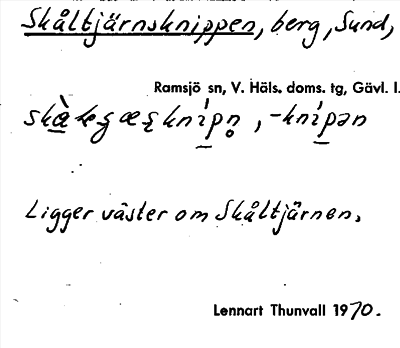 Skåltjärnsknippen, berg, Sund,
Ramsjö sn, V. Häls. doms. tg, Gävl. l.
-knípən
Ligger väster om Skåltjärnen.
Lennart Thunvall 1970.